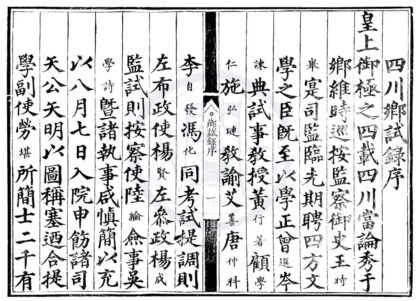 四川鄉試錄序
皇上御極之四載四川當論秀于
鄉維時巡按監察御史王時
寀寔司監臨先期聘四方文
學之臣旣至以學正曾選岑
諫典試事教授黃行若顧學
仁施弘璉教諭艾喜唐仲科
錄序
李自發馮化同考試提調則
左布政使楊賢左叅政楊成
監試則按察使陸綸僉事吳
學詩曁諸執事咸慎簡以充
以八月七日入院申飭諸司
矢公矢明以圖稱塞迺合提
學副使勞堪所簡士二千有